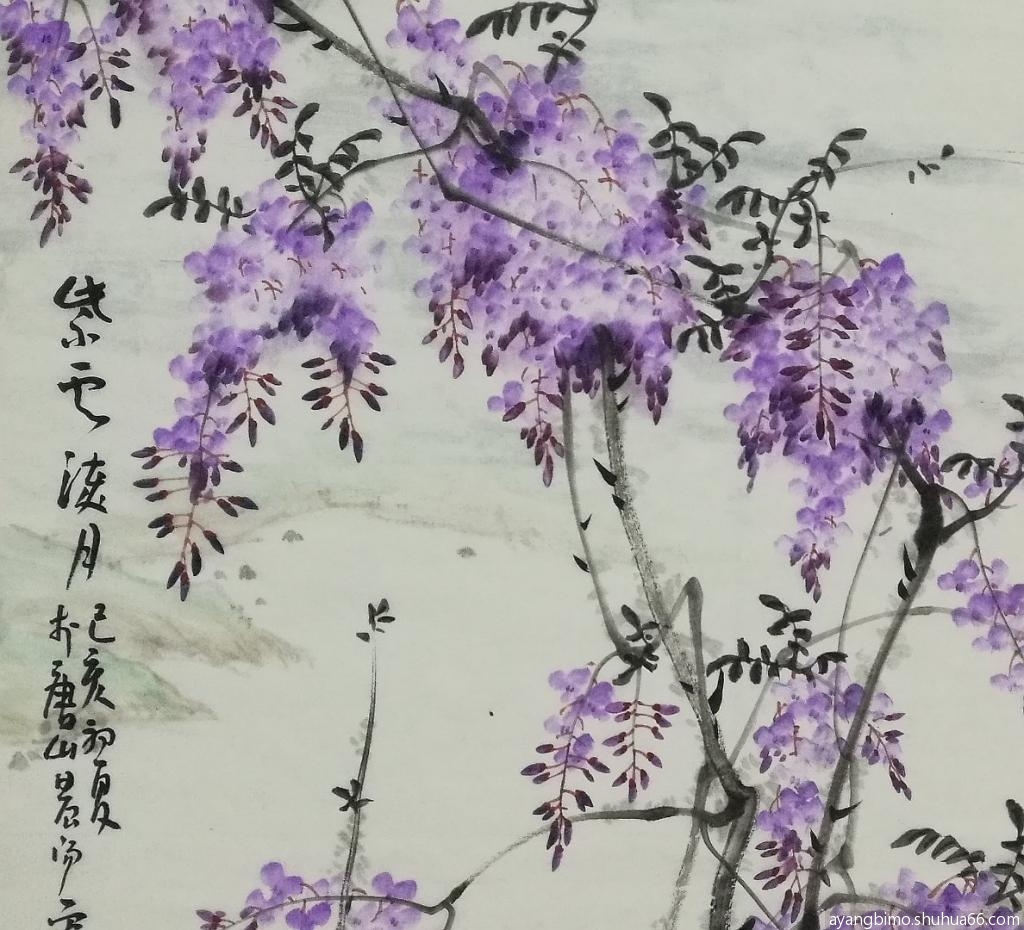 紫云月
己亥初夏
於唐山晨
ayangbimo.shuhua66.com